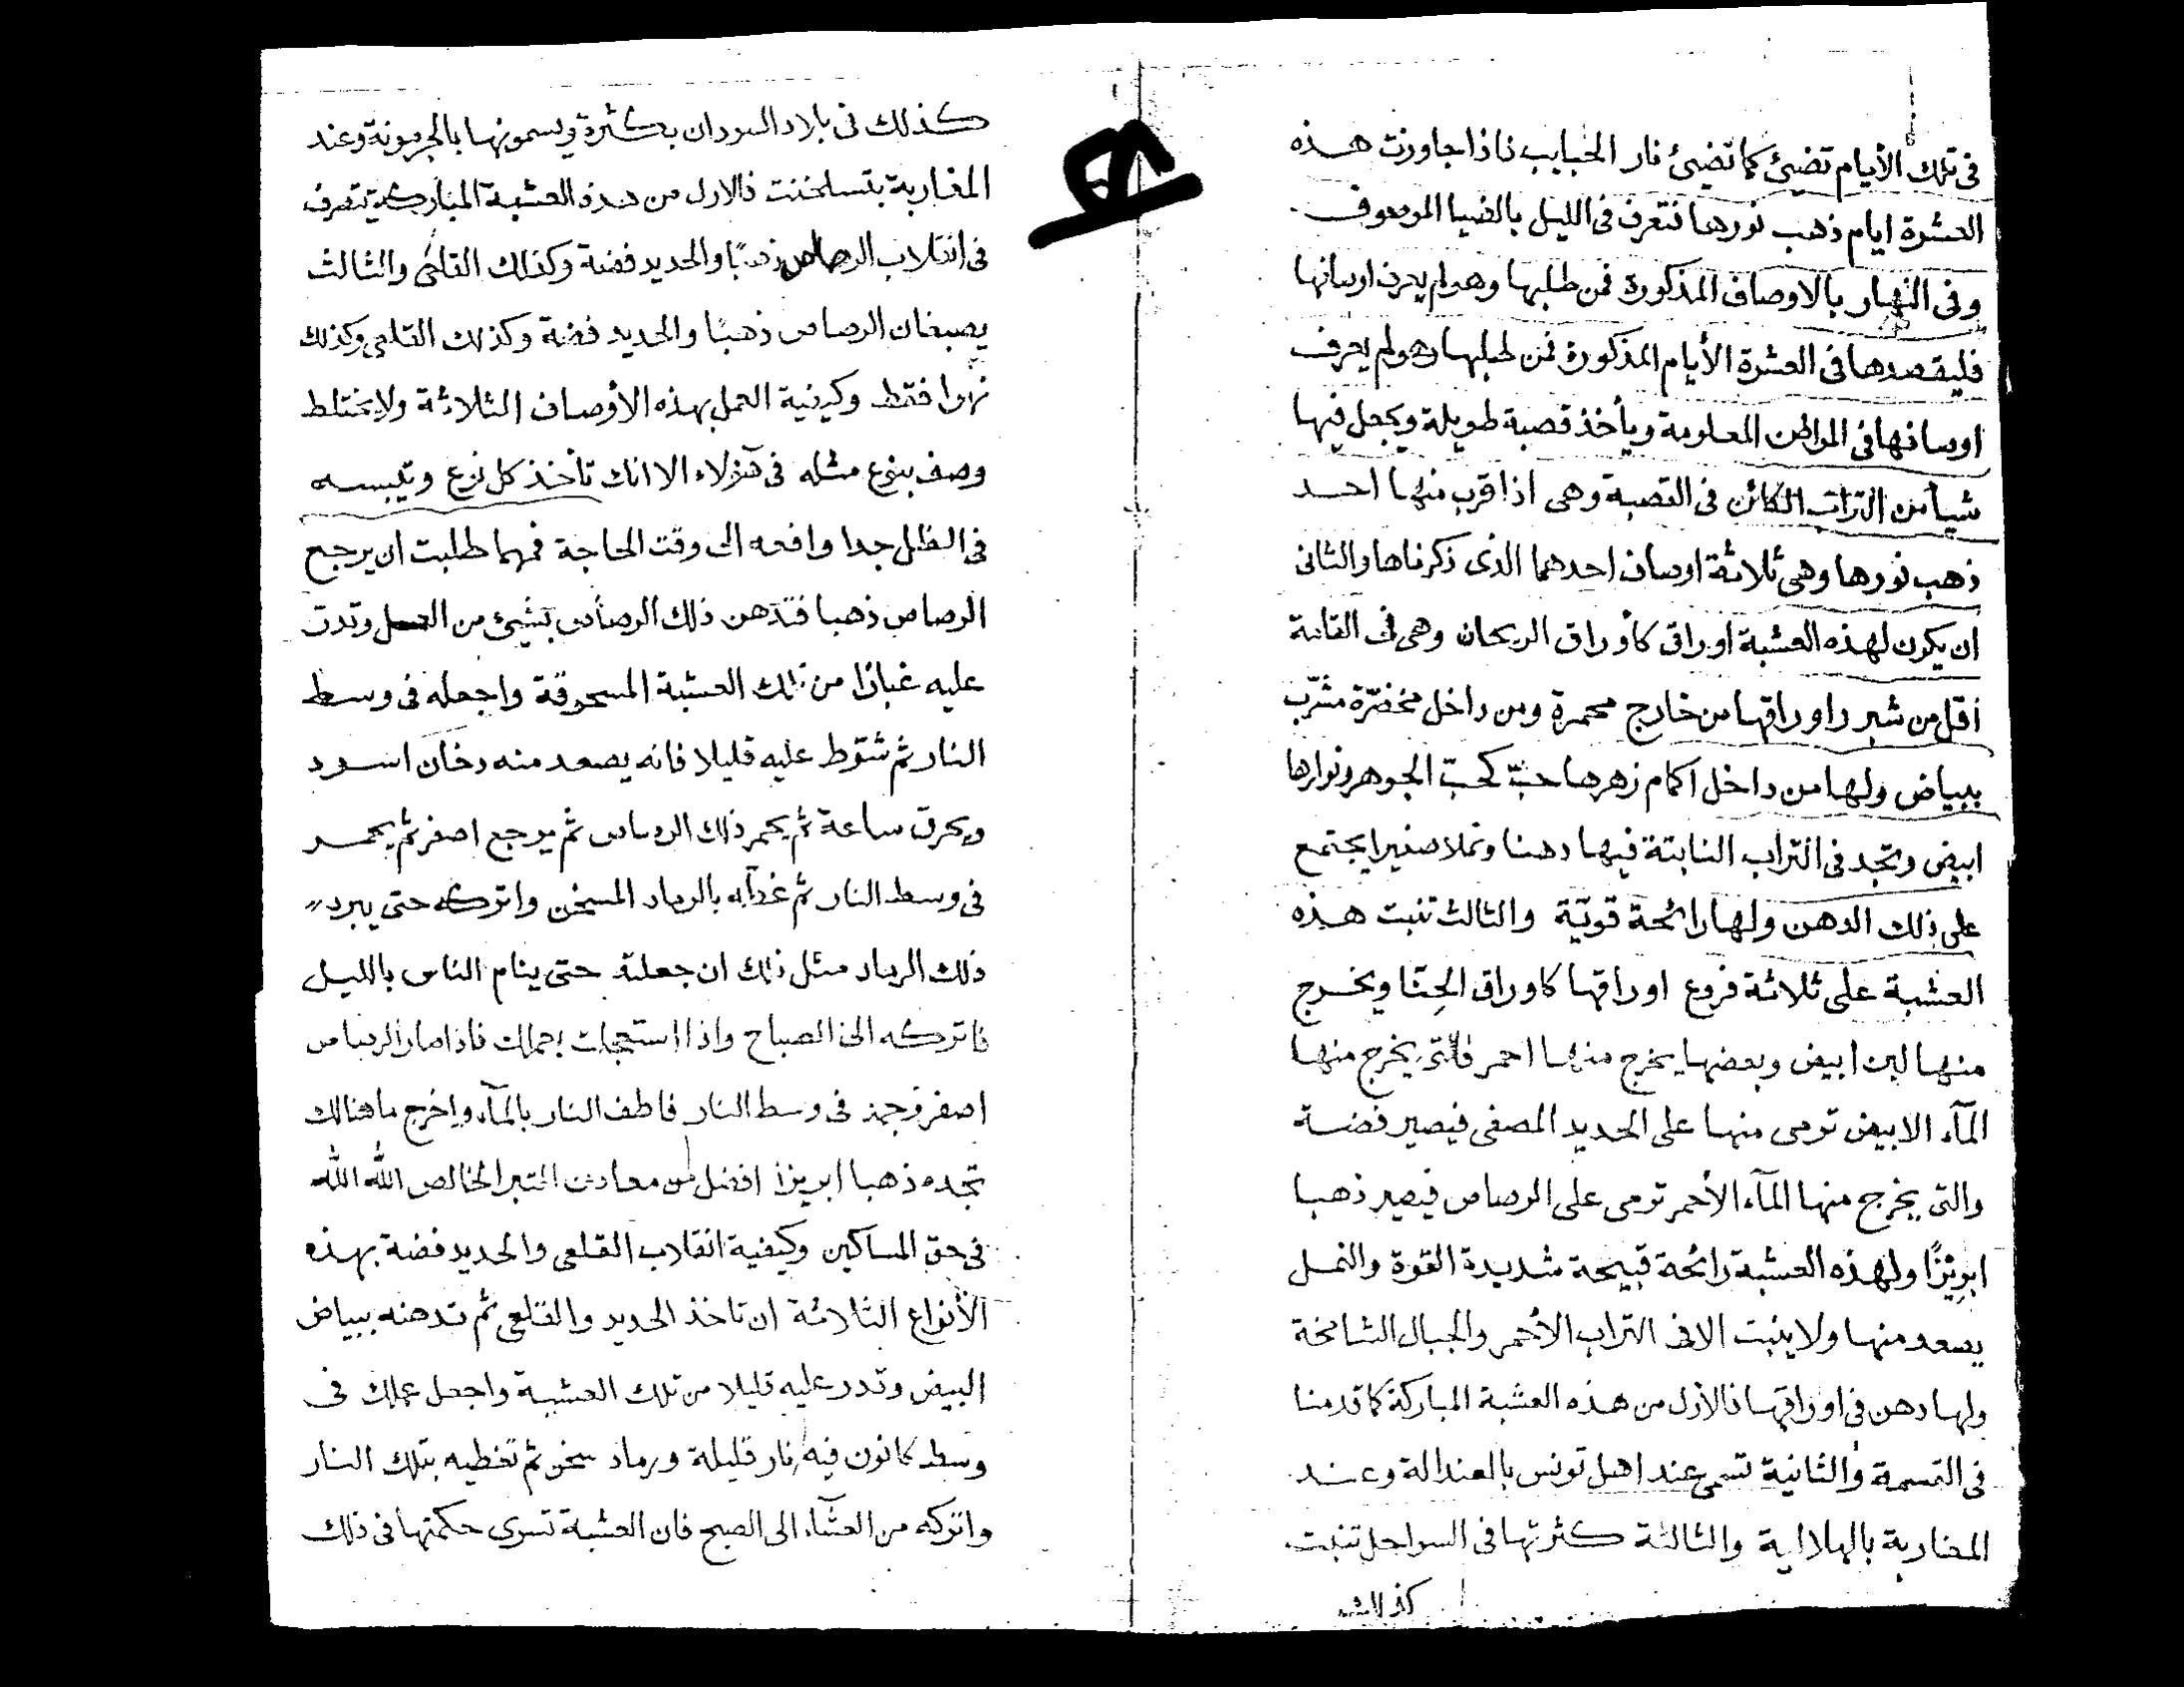 في تلك الأيام تضيئ كما تضيئ نار الحبايب فاذا جاوزت هذه
العشرة ايام ذهب نورها فتعرف في الليل بالضيا الموصوف
وفي النهار بالاوصاف المذكورة فمن طلبها وهو لم يعرف اوصافها
فليقصدها في العشرة الأيام المذكورة فمن طلبها وهو لم يعرف
اوصافها في المواطن المعلومة ويأخذ قصبة طويلة ويجعل فيها
شيأ من التراب الكائن في القصبة وهي اذا قرب منها احد
ذهب نورها وهي ثلاثة اوصاف احدهما الذي ذكرناها والثاني
ان يكون لهذه العشبة اوراق كأوراق الريحان وهي في القامة
أقل من شبر واوراقها من خارج محمرة ومن داخل مخضرّة مشرّب
ببياض ولها من داخل اكمام زهرها حبّ كحبّ الجوهر ونوارها
ابيض وتجد في التراب النابتة فيها دهنا ونملا صغيرا يجتمع
على ذلك الدهن ولها رائحة قويّة والثالث تنبت هذه
العشبة على ثلاثة فروع اوراقها كاوراق الحِنّا ويخرج
منها لبن ابيض وبعضها يخرج منها احمر فالتي يخرج منها
المآء الابيض ترمى منها على الحديد المصفى فيصير فضة
والتي يخرج منها المآء الأحمر ترمى على الرصاص فيصير ذهبا
ابريزًا ولهذه العشبة رائحة قبيحة شديدة القوة والنمل
يصعد منها ولا ينبت الا في التراب الأحمر والجبال الشامخة
ولها دهن في اوراقها فالأول من هذه العشبة المباركة كما قدمنا
في القسمة والثانية تسمى عند اهل تونس بالعندالة وعند
المغاربة والثالثة كثرتها في السواحل تنبت
كذلك
كذلك في بلاد السودان بكثرة ويسمونها وعند
المغاربة فالاول من هذه العشبة المباركة يتصرف
في انقلاب الرصاص ذهبًا والحديد فضة وكذلك القلعي والثالث
يصبغان الرصاص ذهبًا والحديد فضة وكذلك القلعي وكذلك
فقط وكيفية العمل بهذه الأوصاف الثلاثة ولا يختلط
وصف بنوع مثله في هؤلاء الا انك تأخذ كل نوع وتيبسه
في الظل جدا وافعه الى وقت الحاجة فمهما طلبت ان يرجع
الرصاص ذهبا فتدهن ذلك الرصاص بشيئ من العسل وتدر
عليه غبارًا من تلك العشبة المسحوقة واجعله في وسط
النار ثم عليه قليلا فانه يصعد منه دخان اسود
ويحرق ساعة ثم يحمر ذلك الرصاص ثم يرجع اصفر ثم يحمر
في وسط النار ثم بالرماد المسخن واتركه حتى يبرد
ذلك الرماد مثل ذلك ان جعلته حتى ينام الناس بالليل
فاتركه الى الصباح واذا استعجلت بعملك فاذا صار الرصاص
اصفر في وسط النار فاطف النار بالمآء واخرج ما هنالك
تجده ذهبا ابريزا افضل من معادن التبر الخالص الله الله
في حق المساكين وكيفية انقلاب القلعي والحديد فضة بهذه
الأنواع الثلاثة ان تاخذ الحديد والقلعي ثم تدهنه ببياض
البيض وتدر عليه قليلا من تلك العشبة واجعل عملك في
وسط كانون فيه نار قليلة ورماد سخن ثم تغطيه بتلك النار
واتركه من العشآء الى الصبح فان العشبة تسرى حكمتها في ذلك